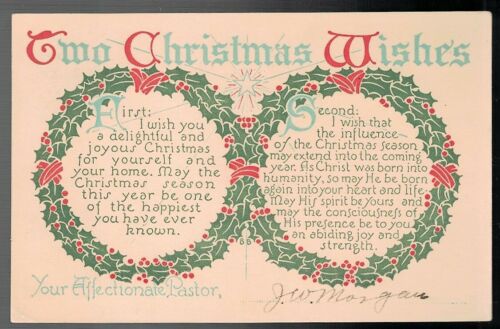 Two Christmas Wishes
First:
I wish you
a delightful and
joyous Christmas
for yourself and
your home. May the
Christmas season
this year be, one
of the happiest
you have ever
known.
Second:
I wish that
the influence
of the Christmas season
may extend into the coming
year. As Christ was born into
humanity, so may He be born
again into your heart and life.
May His spirit be yours and
may the consciousness of
His presence be to you
an abiding joy and
strength.
BB
Your Affectionate Pastor,
J.W. Morgan